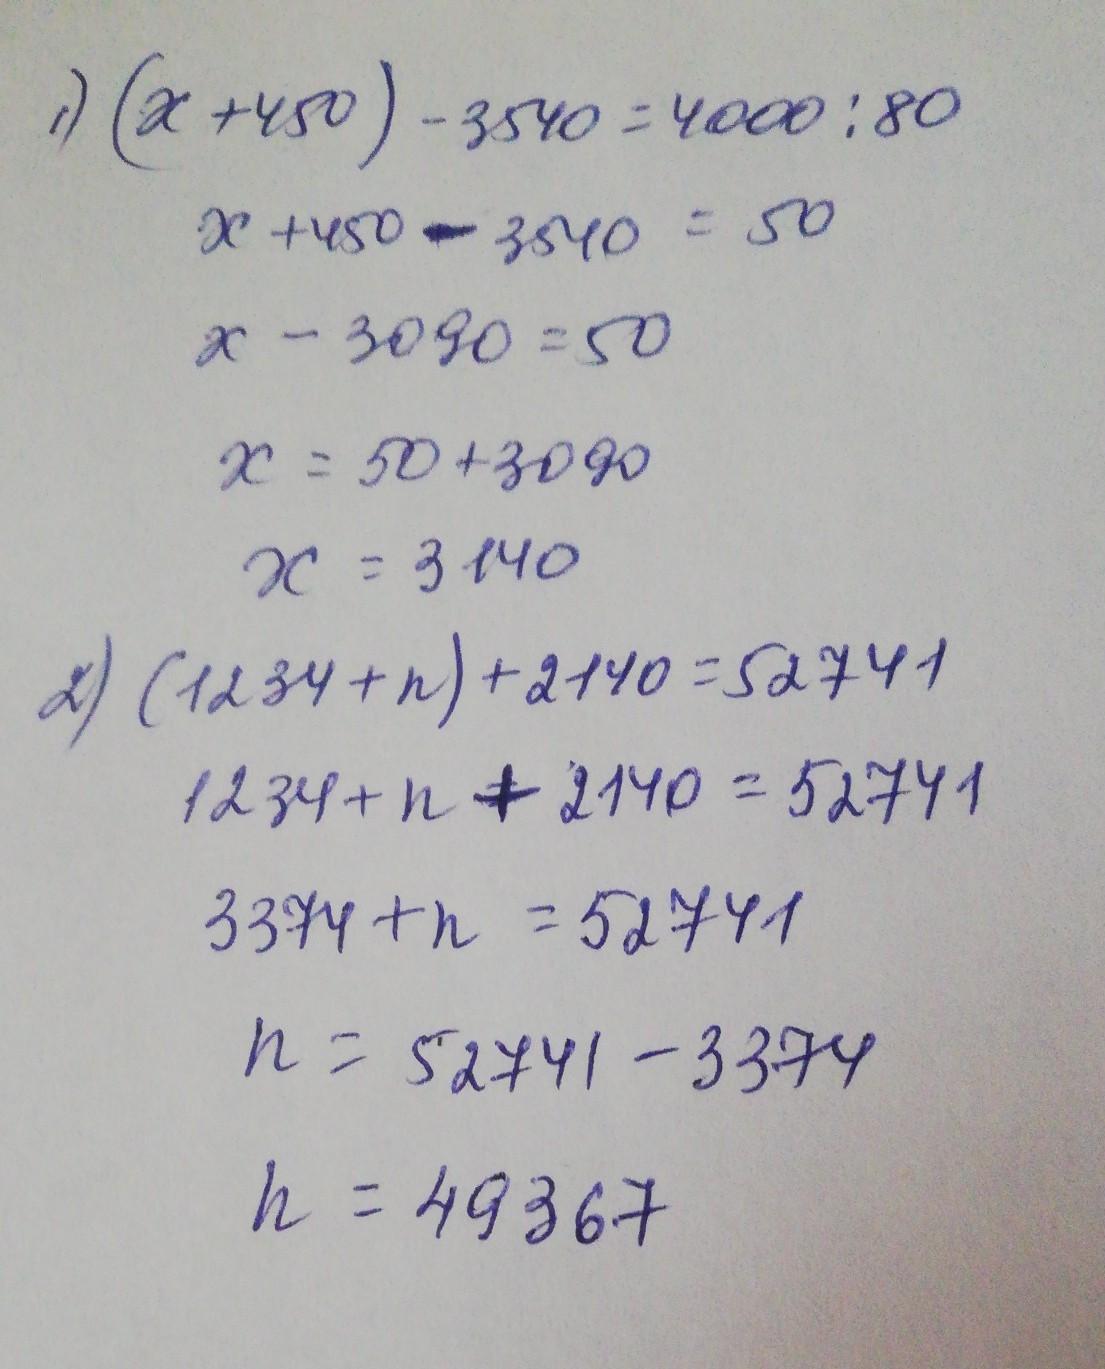 1) (x+450)-3540=4000:80
x+450-3540=50
x-3090=50
x=50+3090
x=3140
2) (1234+n)+2140=52741
1234+n+2140=52741
3374+n=52741
n=52741-3374
n=49367